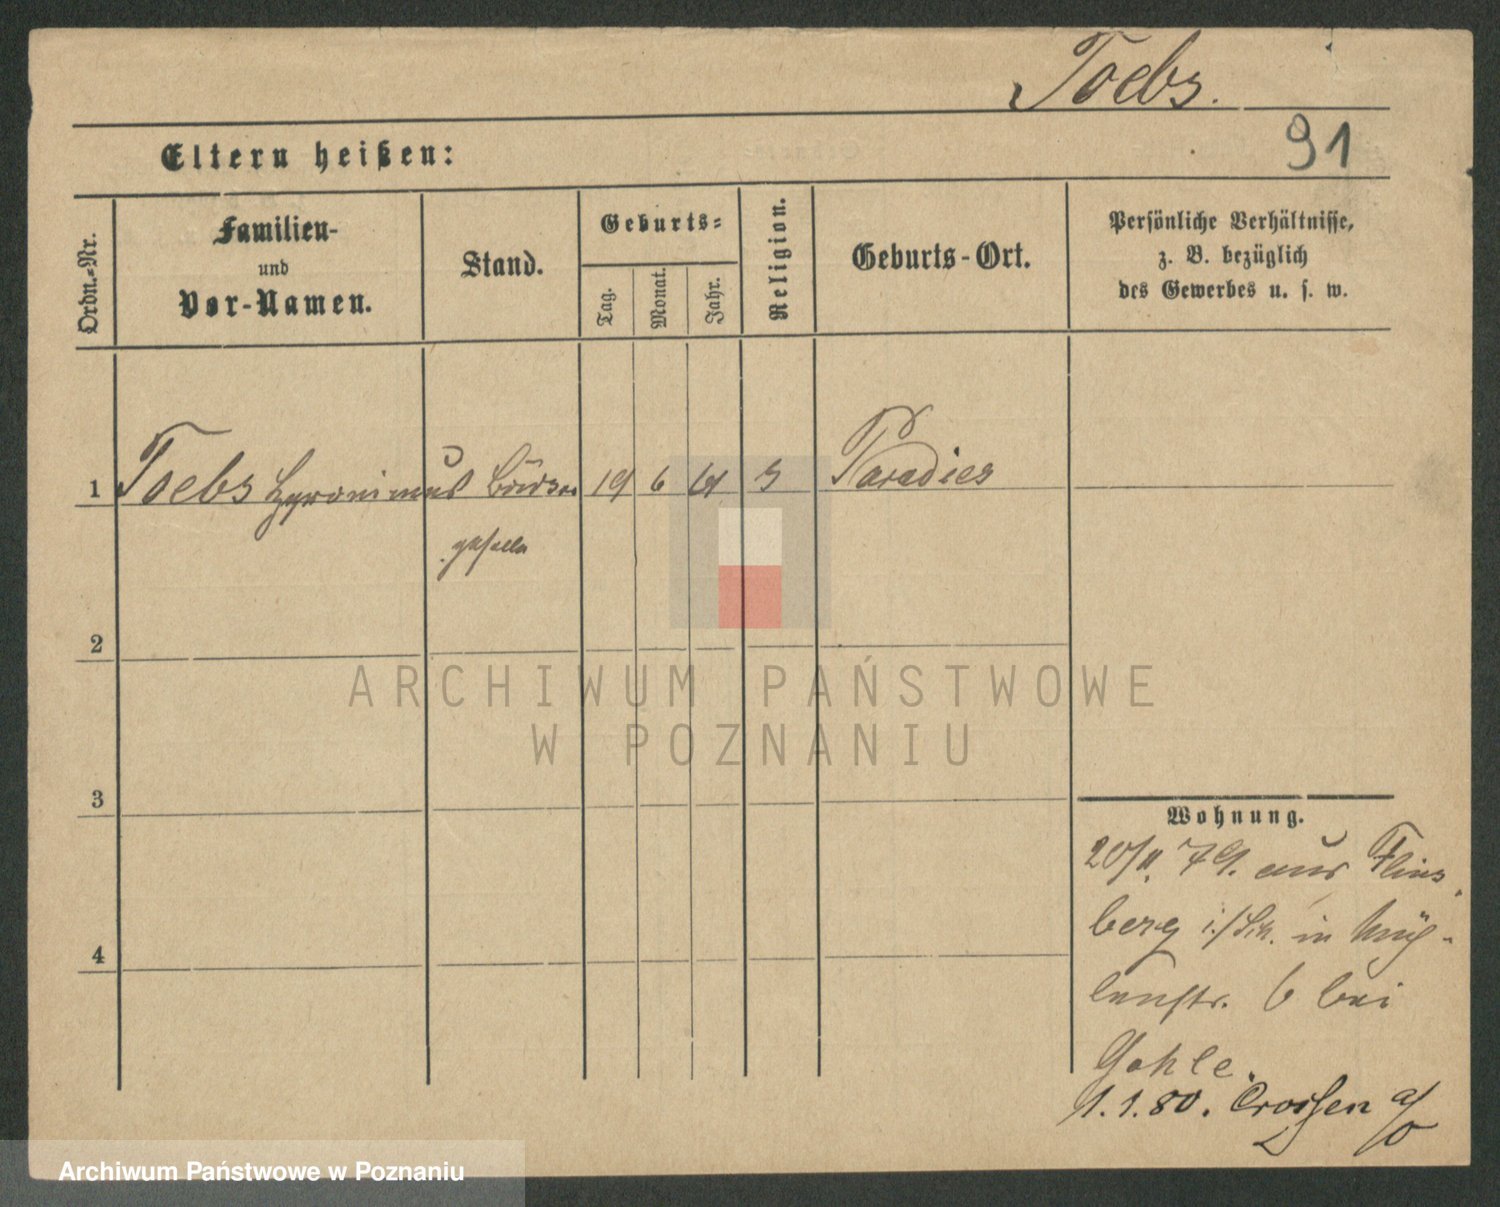 Toebs.
91
Eltern heißen:
Ordn.-Nr.
Familien-
und
Vor-Namen.
Stand.
Geburts-
Tag.
Monat.
Jahr.
Religion.
Geburts-Ort.
Persönliche Verhältnisse,
z. B. bezüglich
des Gewerbes u. s. w.
1 Toebs Hyronimus 19 6 61 Paradies
2
3
4
Wohnung.
20/11. 79. aus Flins
berg i./Sch. in Müh-
lenstr. 6 bei
Gohle.
1.1.80. Crossen a/O
ARCHIWUM PAŃSTWOWE
W POZNANIU
Archiwum Państwowe w Poznaniu